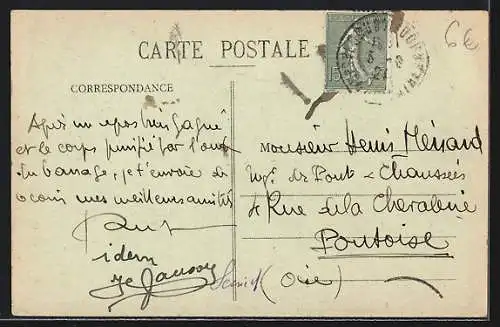 CARTE POSTALE
6€
CORRESPONDANCE
Après un repos bien gagné
et le corps purifié par l'eau
du barrage, je t'envoie de
mes meilleures amitiés
Paul
idem
Monsieur Henri Ménard
Ing. des Ponts & Chaussées
4 Rue de la Chevalerie
Pontoise
(Oise)